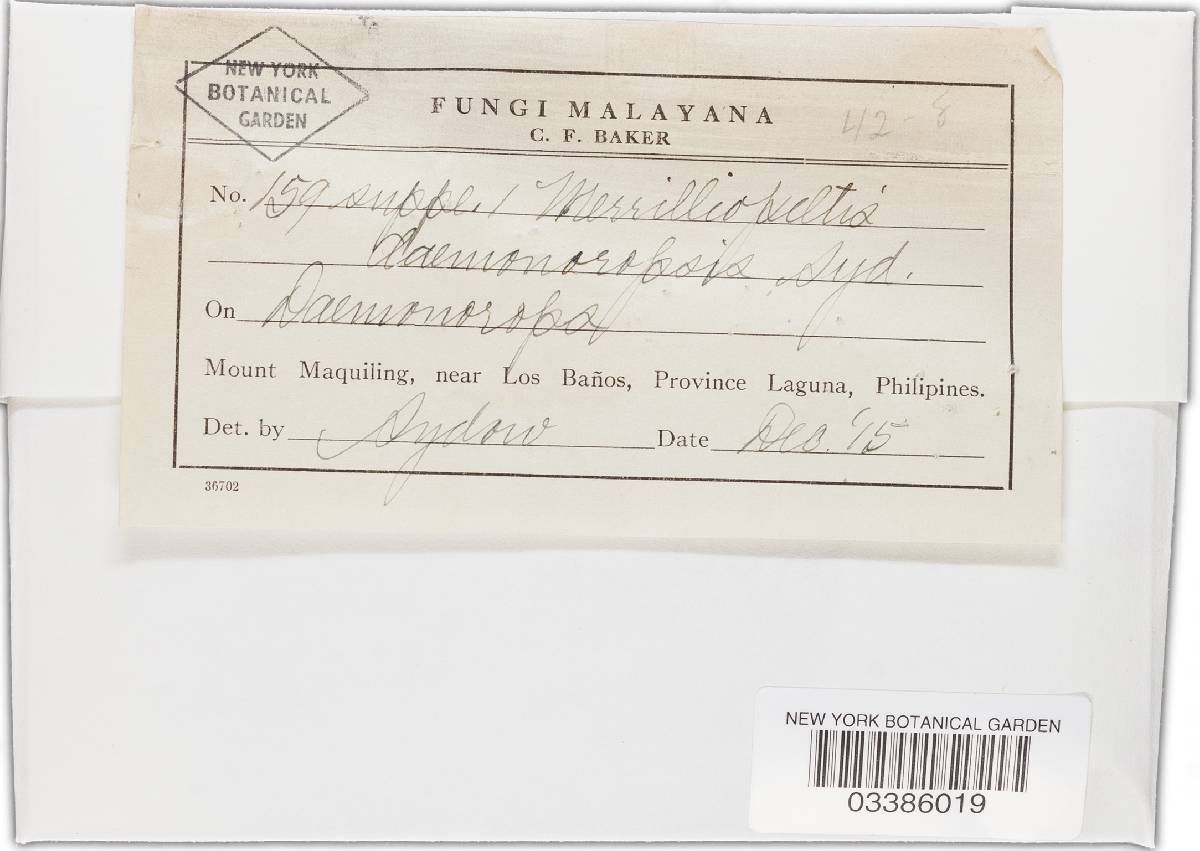 NEW YORK
BOTANICAL
GARDEN
FUNGI MALAYANA
C. F. BAKER
42-8
No. 159 supple. 1 Merrilliopeltis
daemonoropsis Syd.
On Daemonorops
Mount Maquiling, near Los Baños, Province Laguna, Philipines.
Det. by Sydow Date Dec. '15
36702
NEW YORK BOTANICAL GARDEN
03386019